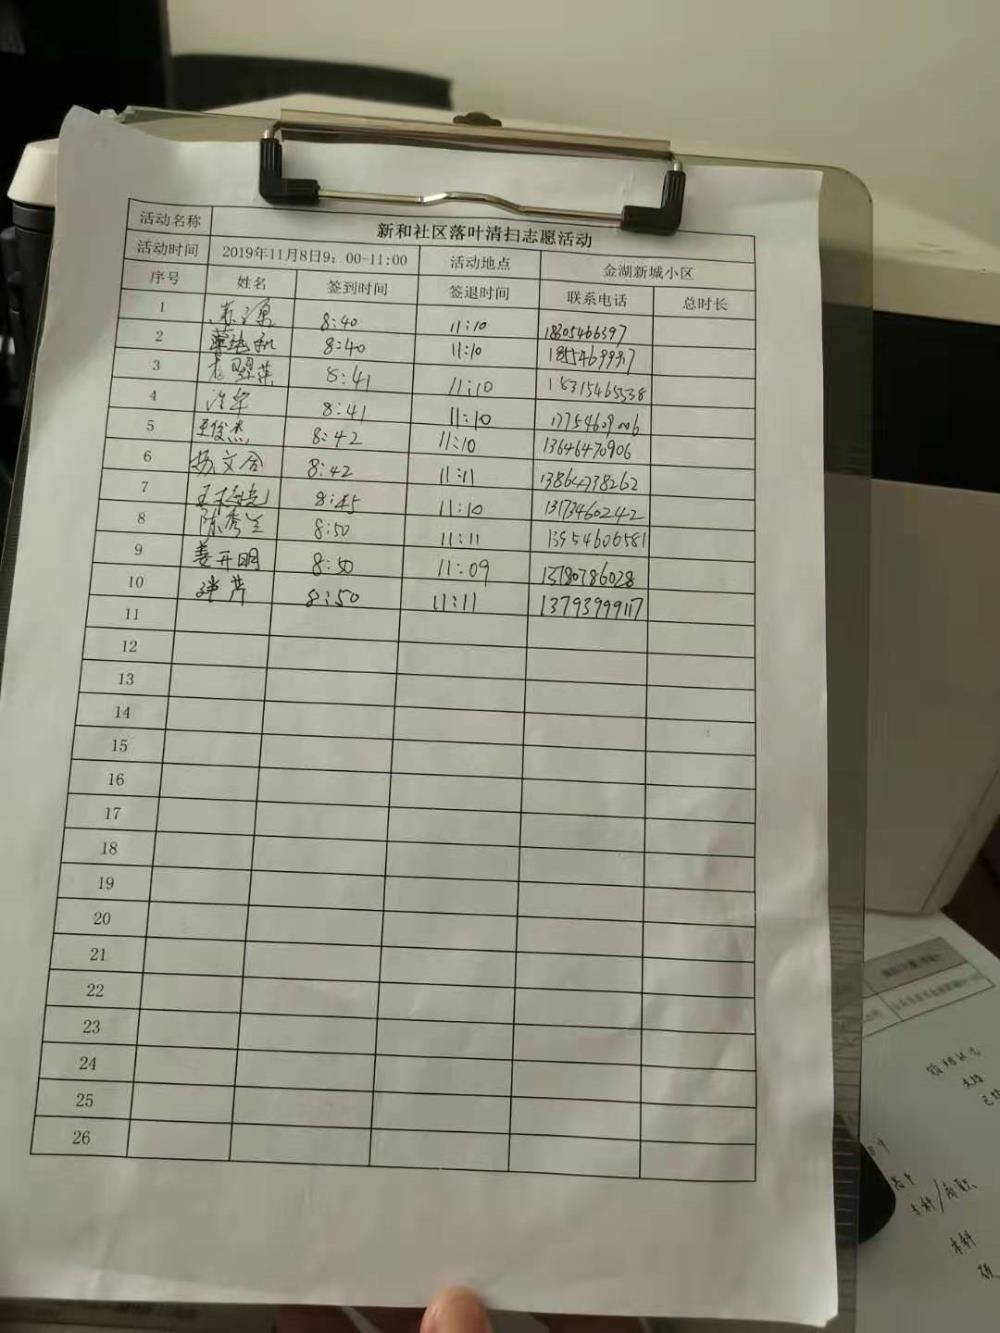 活动名称 新和社区落叶清扫志愿活动
活动时间 2019年11月8日9：00-11:00 活动地点 金湖新城小区
序号 姓名 签到时间 签退时间 联系电话 总时长
1 8:40 11:10 18305466397
2 8:40 11:10 18554699917
3 8:41 11:10 18315465538
4 8:41 11:10
5 王俊杰 8:42 11:10 13646470906
6 杨文合 8:42 11:11 13864738262
7 8:45 11:10
8 陈秀兰 8:50 11:11 13954606581
9 姜开明 8:50 11:09
10 8:50 11:11 13793999117
11
12
13
14
15
16
17
18
19
20
21
22
23
24
25
26
专科/高职
本科